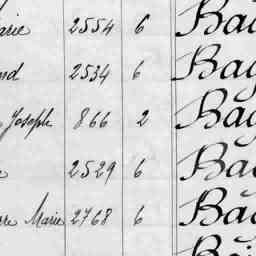 arie 2554 6 Bay
nd 2534 6 Bay
Joseph 866 2 Bay
2529 6 Bay
re Marie 2768 6 Bay